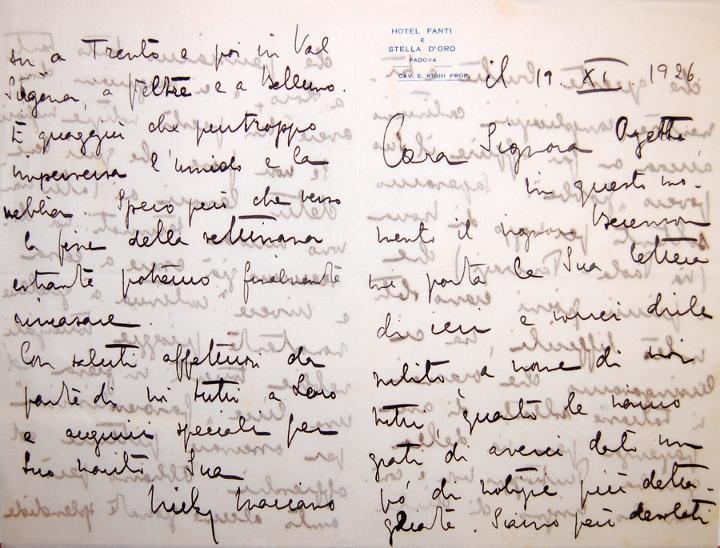 HOTEL FANTI
E
STELLA D'ORO
PADOVA
CAV. E. RIGHI PROP.
il 19 XI 1926
Cara Signora
in questo mo-
mento il signor Berenson
mi porta la Sua lettera
di ieri e vorrei dirle
subito a nome di noi
tutti, quanto le siamo
grati di averci dato un
po' di notizie più detta-
gliate. Siamo però desolati
su, a Trento e poi in Val
Sugana, a Feltre e a Belluno.
È quaggiù che purtroppo
imperversa l'umido e la
nebbia. Spero però che verso
la fine della settimana
entrante potremo finalmente
rincasare.
Con saluti affettuosi da
parte di noi tutti a Loro
e auguri speciali per
Suo marito Sua
Nicky Mariano